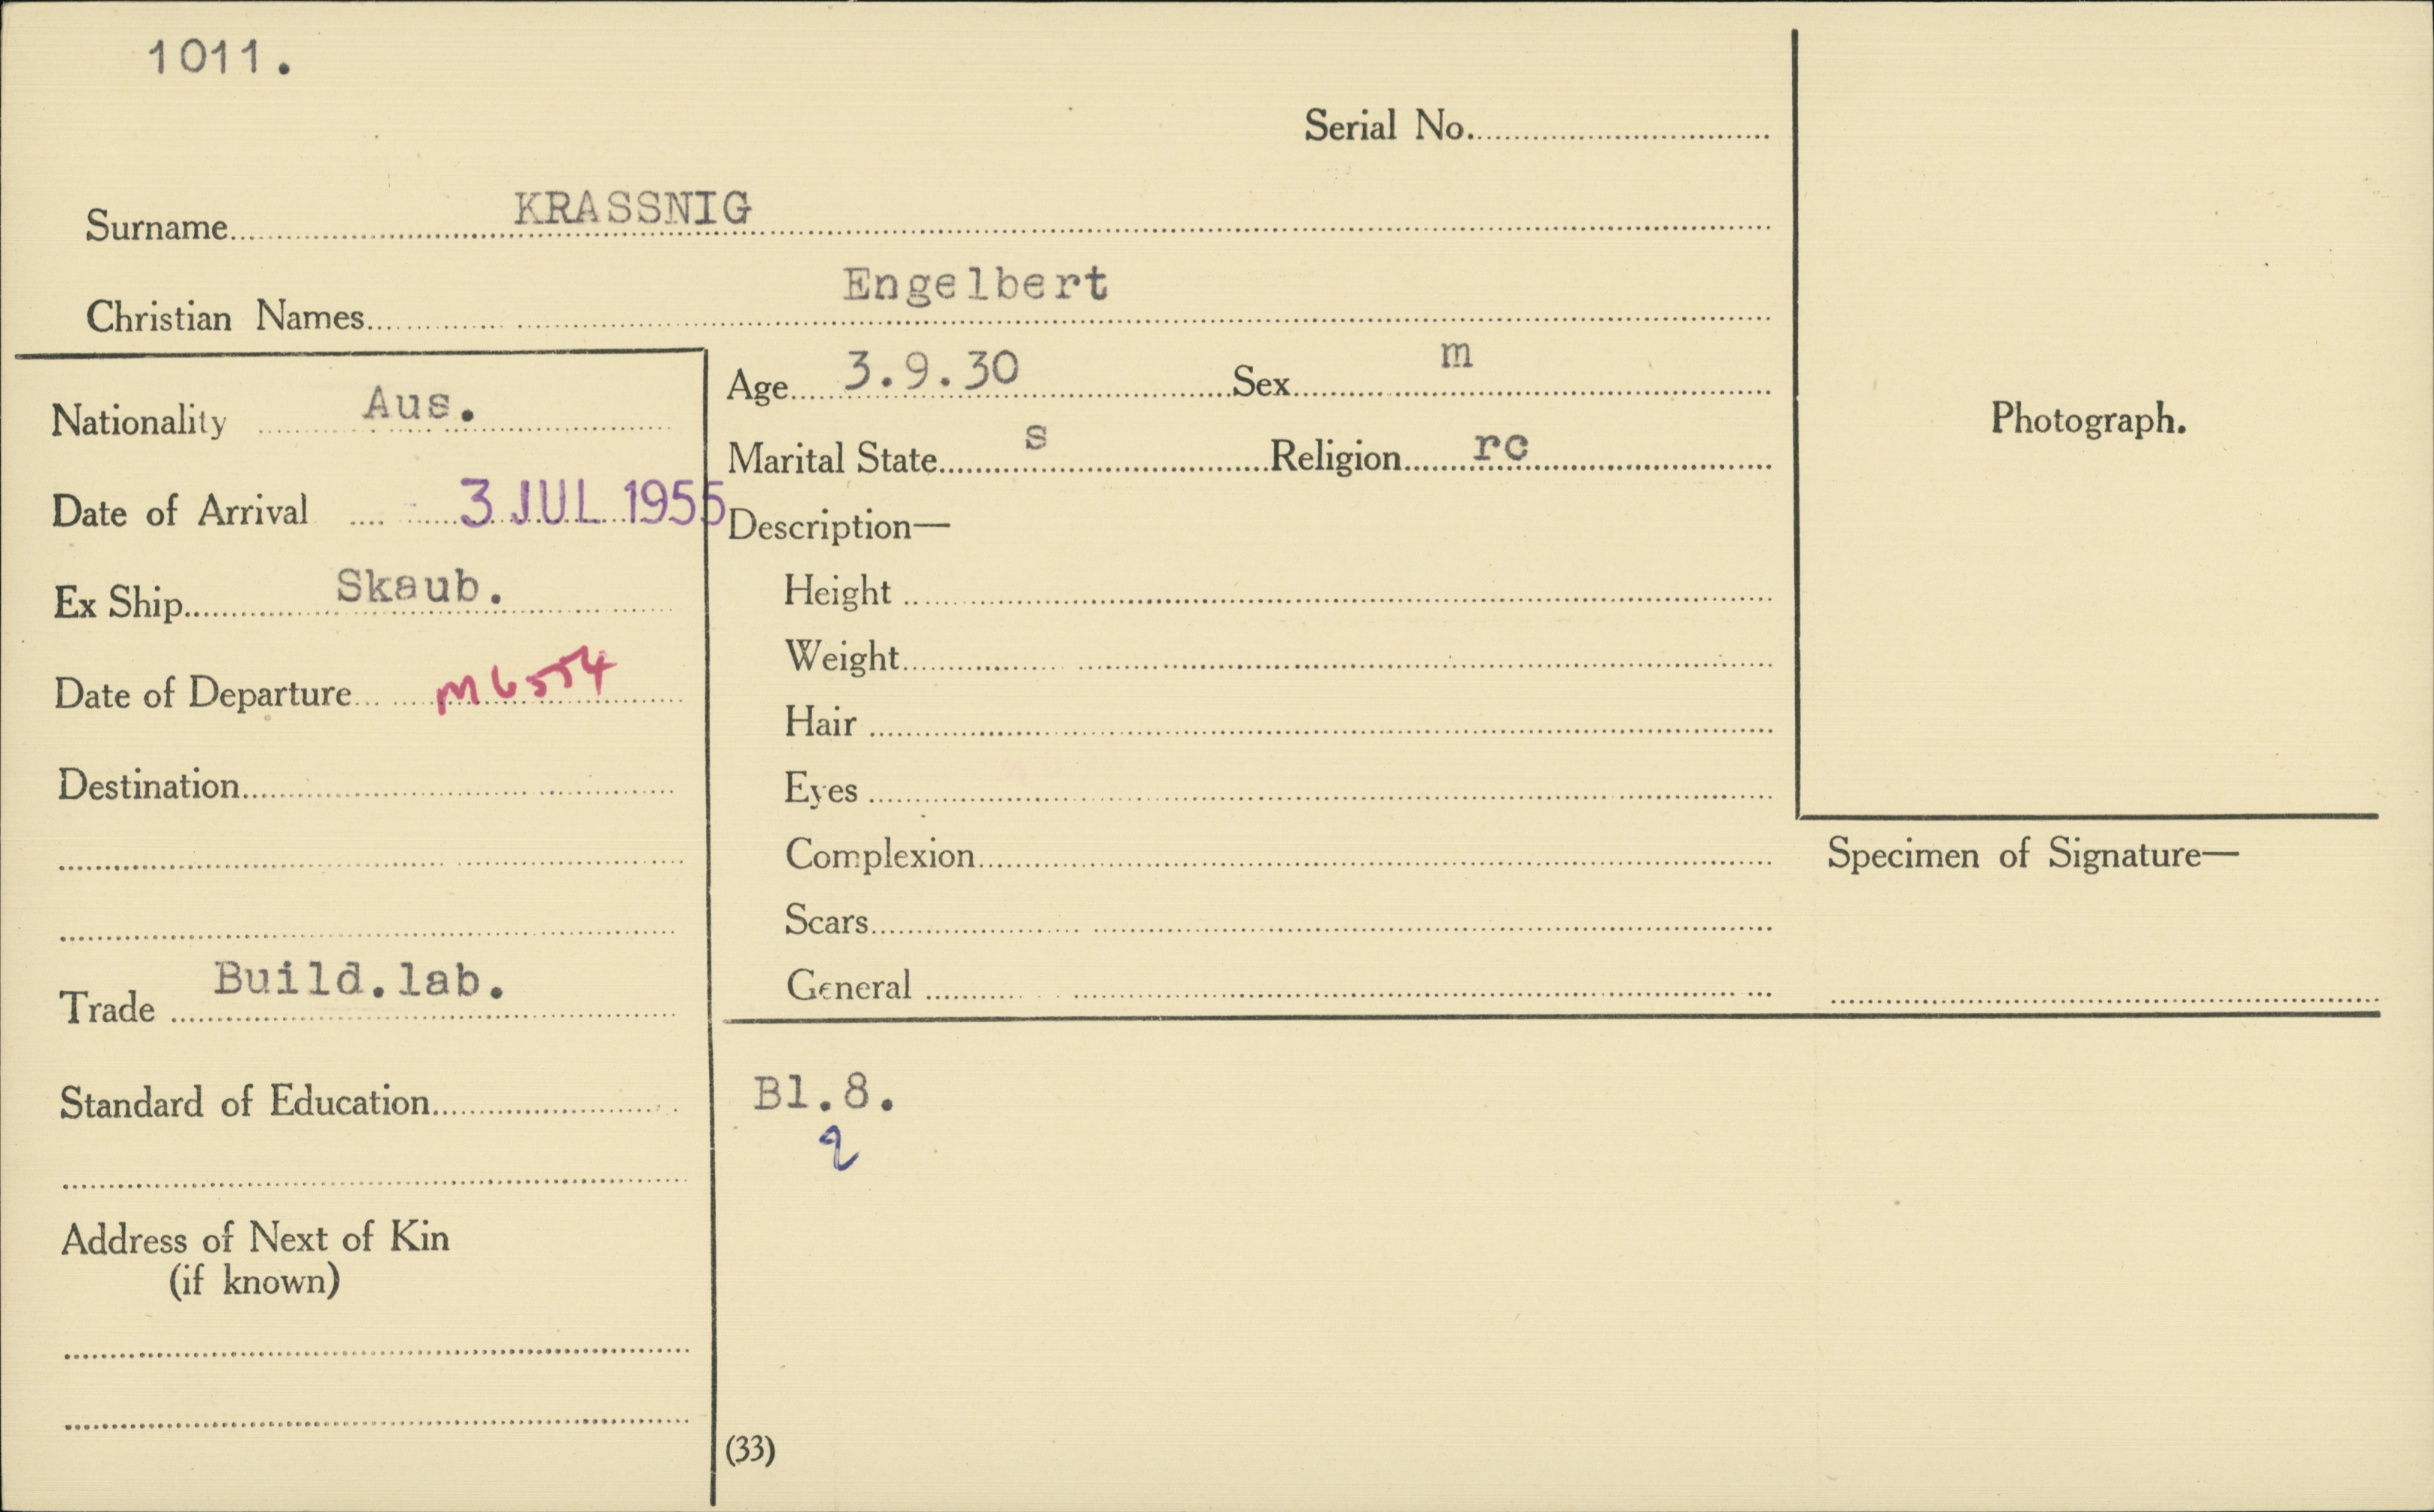 1011.
Serial No.
Surname KRASSNIG
Christian Names Engelbert
Nationality Aus.
Date of Arrival 3 JUL 1955
Ex Ship Skaub.
Date of Departure M6554
Destination
Trade Build.lab.
Standard of Education
Address of Next of Kin
(if known)
Age 3.9.30 Sex m
Marital State s Religion rc
Description—
Height
Weight
Hair
Eyes
Complexion
Scars
General
Photograph.
Specimen of Signature—
Bl.8.
2
(33)